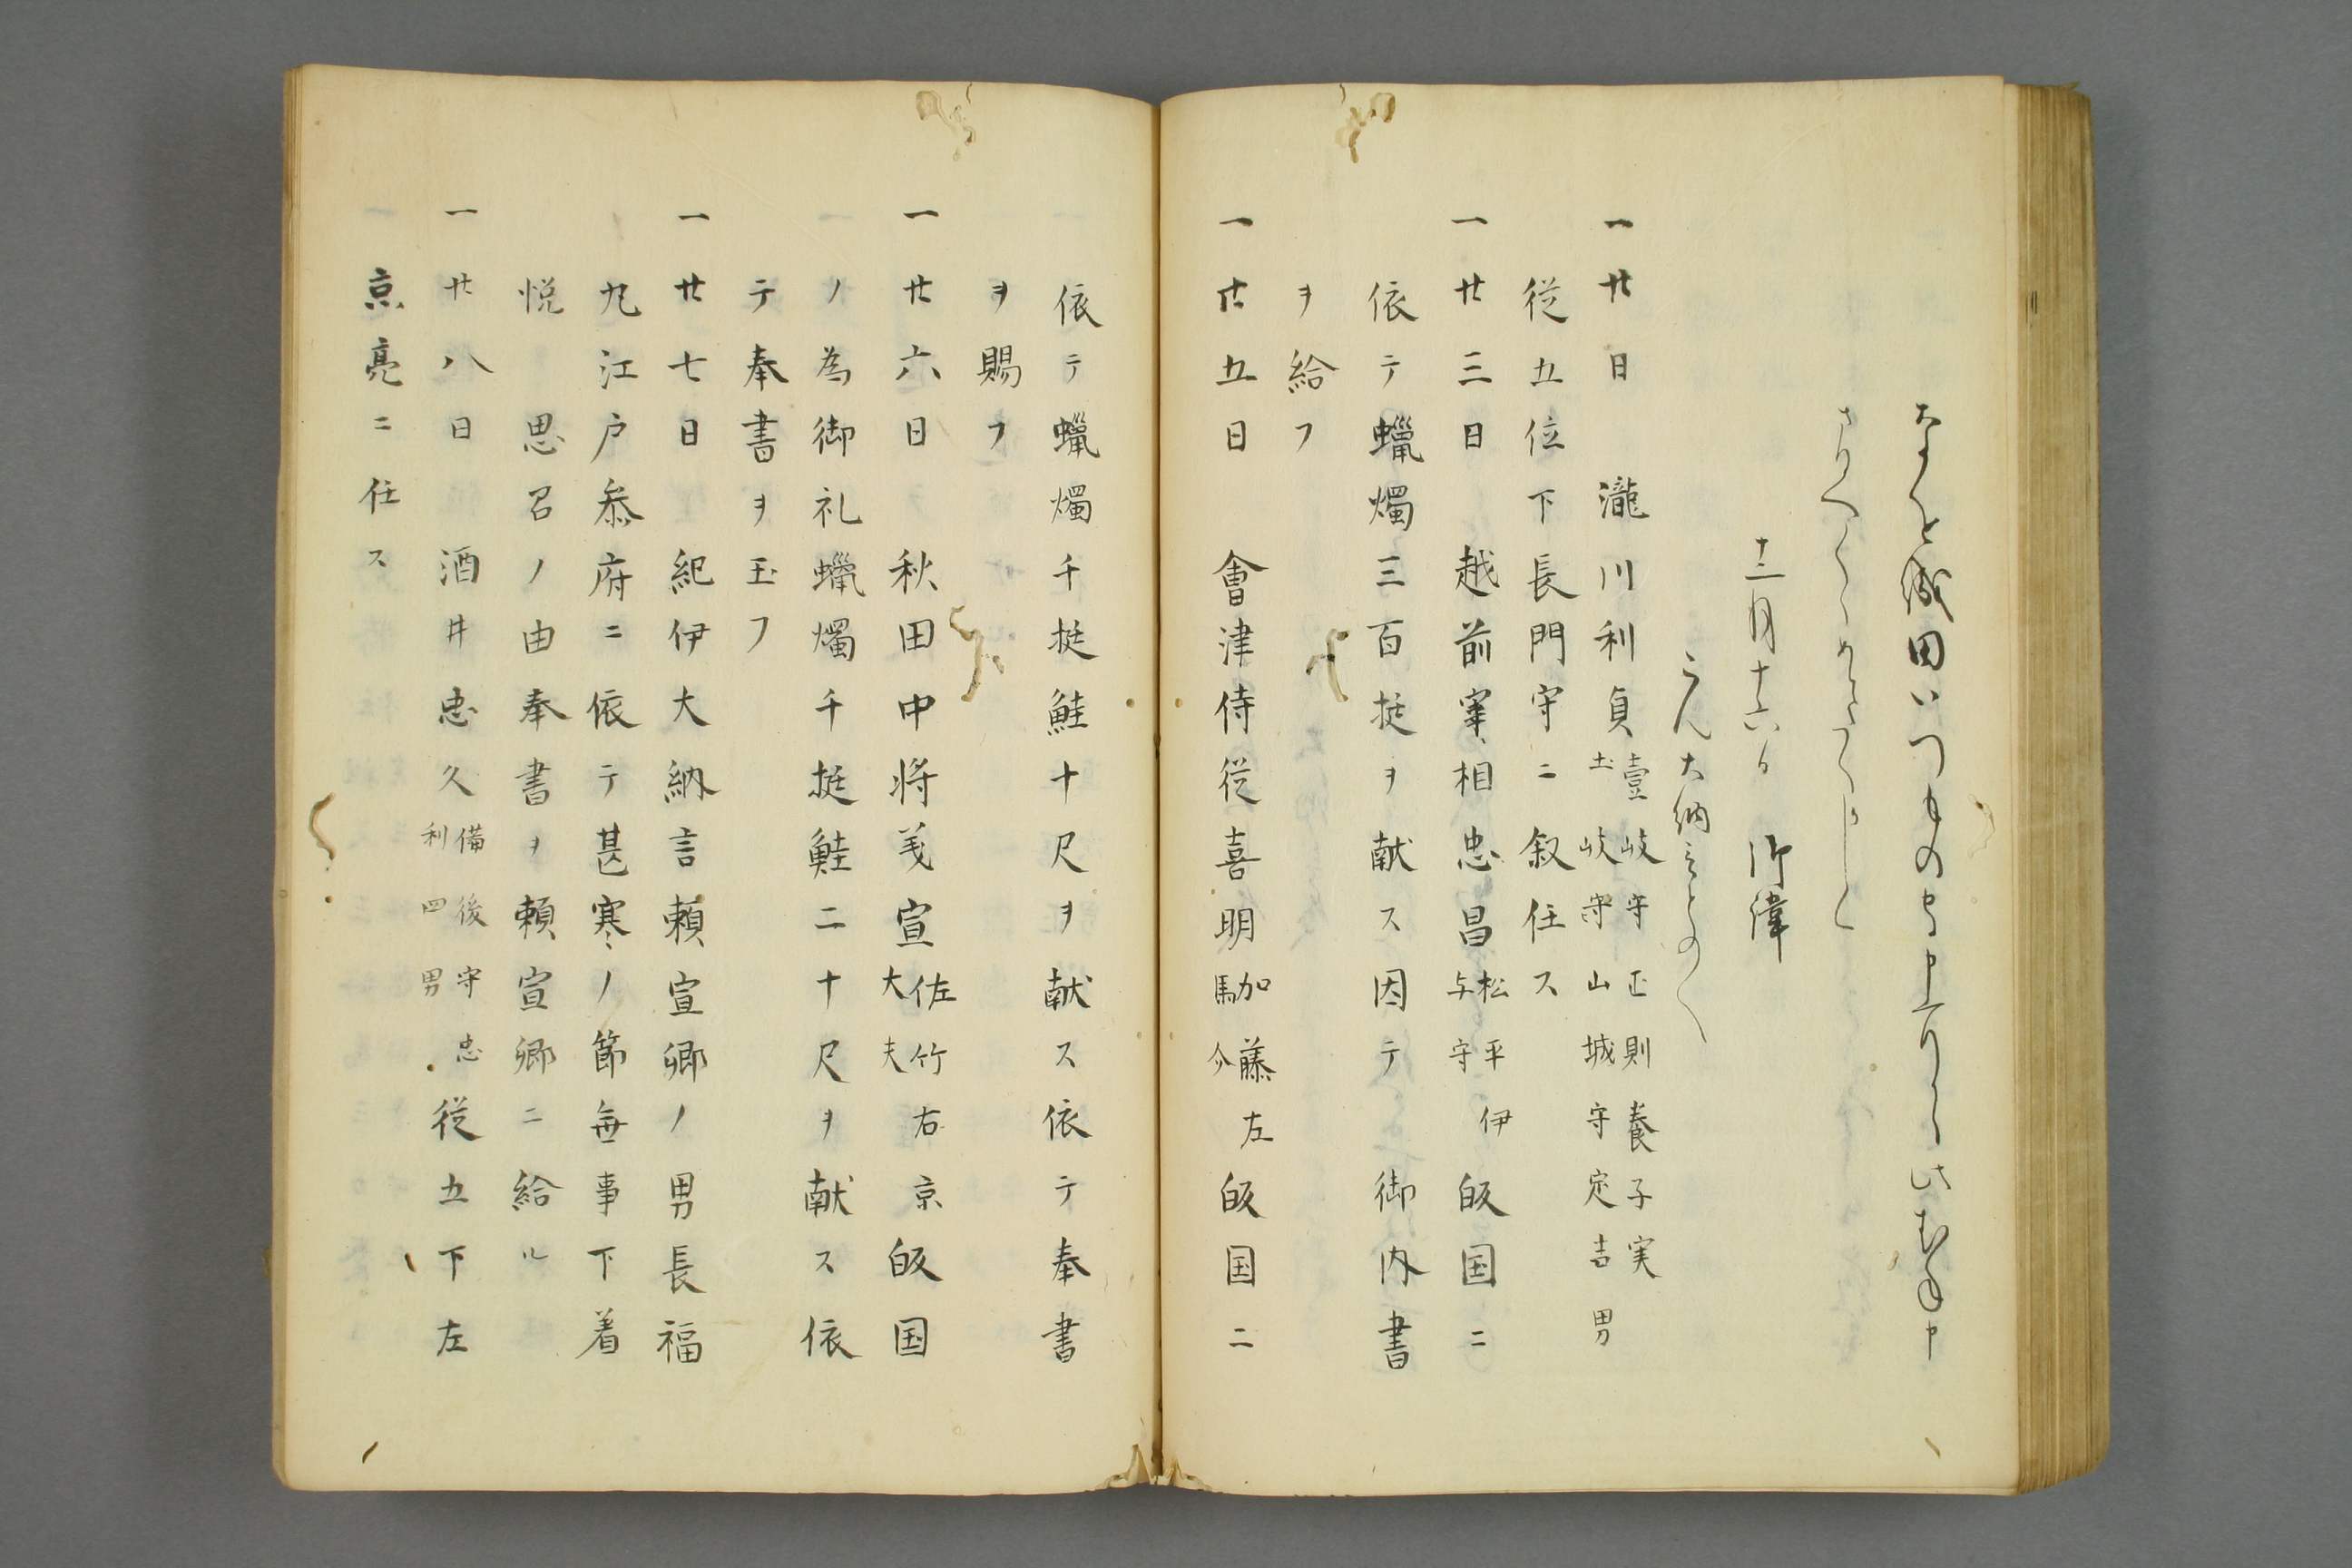 十二月十六日 御諱
大納言との
一廿日 瀧川利貞 壹岐守正則養子実
土岐守山城守定吉男
従五位下長門守ニ叙任ス
一廿三日 越前宰相忠昌 松平伊
与守 皈国ニ
依テ蠟燭三百挺ヲ献ス因テ 御内書
ヲ給フ
一廿五日 會津侍従喜明 加藤左
馬介 皈国ニ
依テ蠟燭千挺鮭十尺ヲ献ス依テ奉書
ヲ賜フ
一廿六日 秋田中将義宣 佐竹右京
大夫 皈国
ノ為御礼蠟燭千挺鮭二十尺ヲ献ス依
テ奉書ヲ玉フ
一廿七日 紀伊大納言頼宣卿ノ男長福
丸江戸叅府ニ依テ甚寒ノ節無事下着
悦 思召ノ由奉書ヲ頼宣卿ニ給ル
一廿八日 酒井忠久 備後守忠
利四男 従五下左
京亮ニ任ス